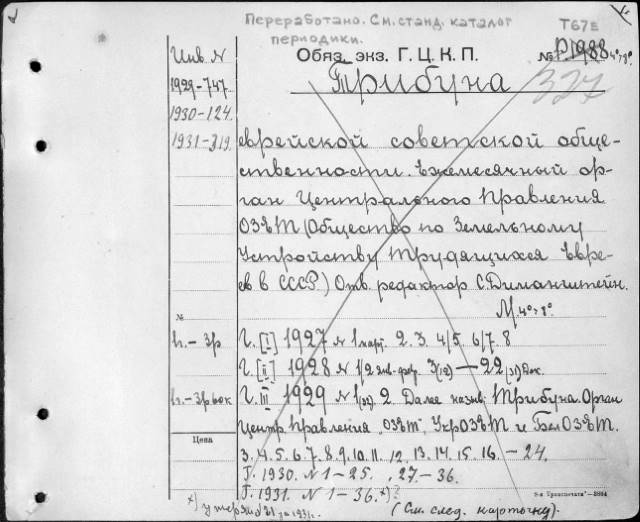 Переработано. См. станд. каталог
периодики.
Т67Е
Инв. N
Обяз. экз. Г. Ц. К. П.
№ П1988 4°>8°.
1929-747.
Трибуна
327
1930-124.
1931-319.
еврейской советской обще-
ственности. Ежемесячный ор-
ган Центрального Правления
ОЗЕТ (Общество по Земельному
Устройству Трудящихся Евре-
ев в СССР.) Отв. редактор С. Диманштейн.
М. 4°>8°.
№
Г. [I] 1927 N 1 март 2. 3. 4/5. 6/7. 8
Г. [II] 1928 N 1/2 янв.-фев. 3(12) — 22(31) Дек.
Г. III 1929 N 1(32). 2. Далее назв: Трибуна. Орган
Центр. Правления "ОЗЕТ", УкрОЗЕТ и БелОЗЕТ.
Цена
3. 4. 5. 6. 7. 8. 9. 10. 11. 12. 13. 14. 15. 16. — 24.
Г. 1930. N 1-25. 27-36.
Г. 1931. N 1-36. x)?
(См. след. карточку).